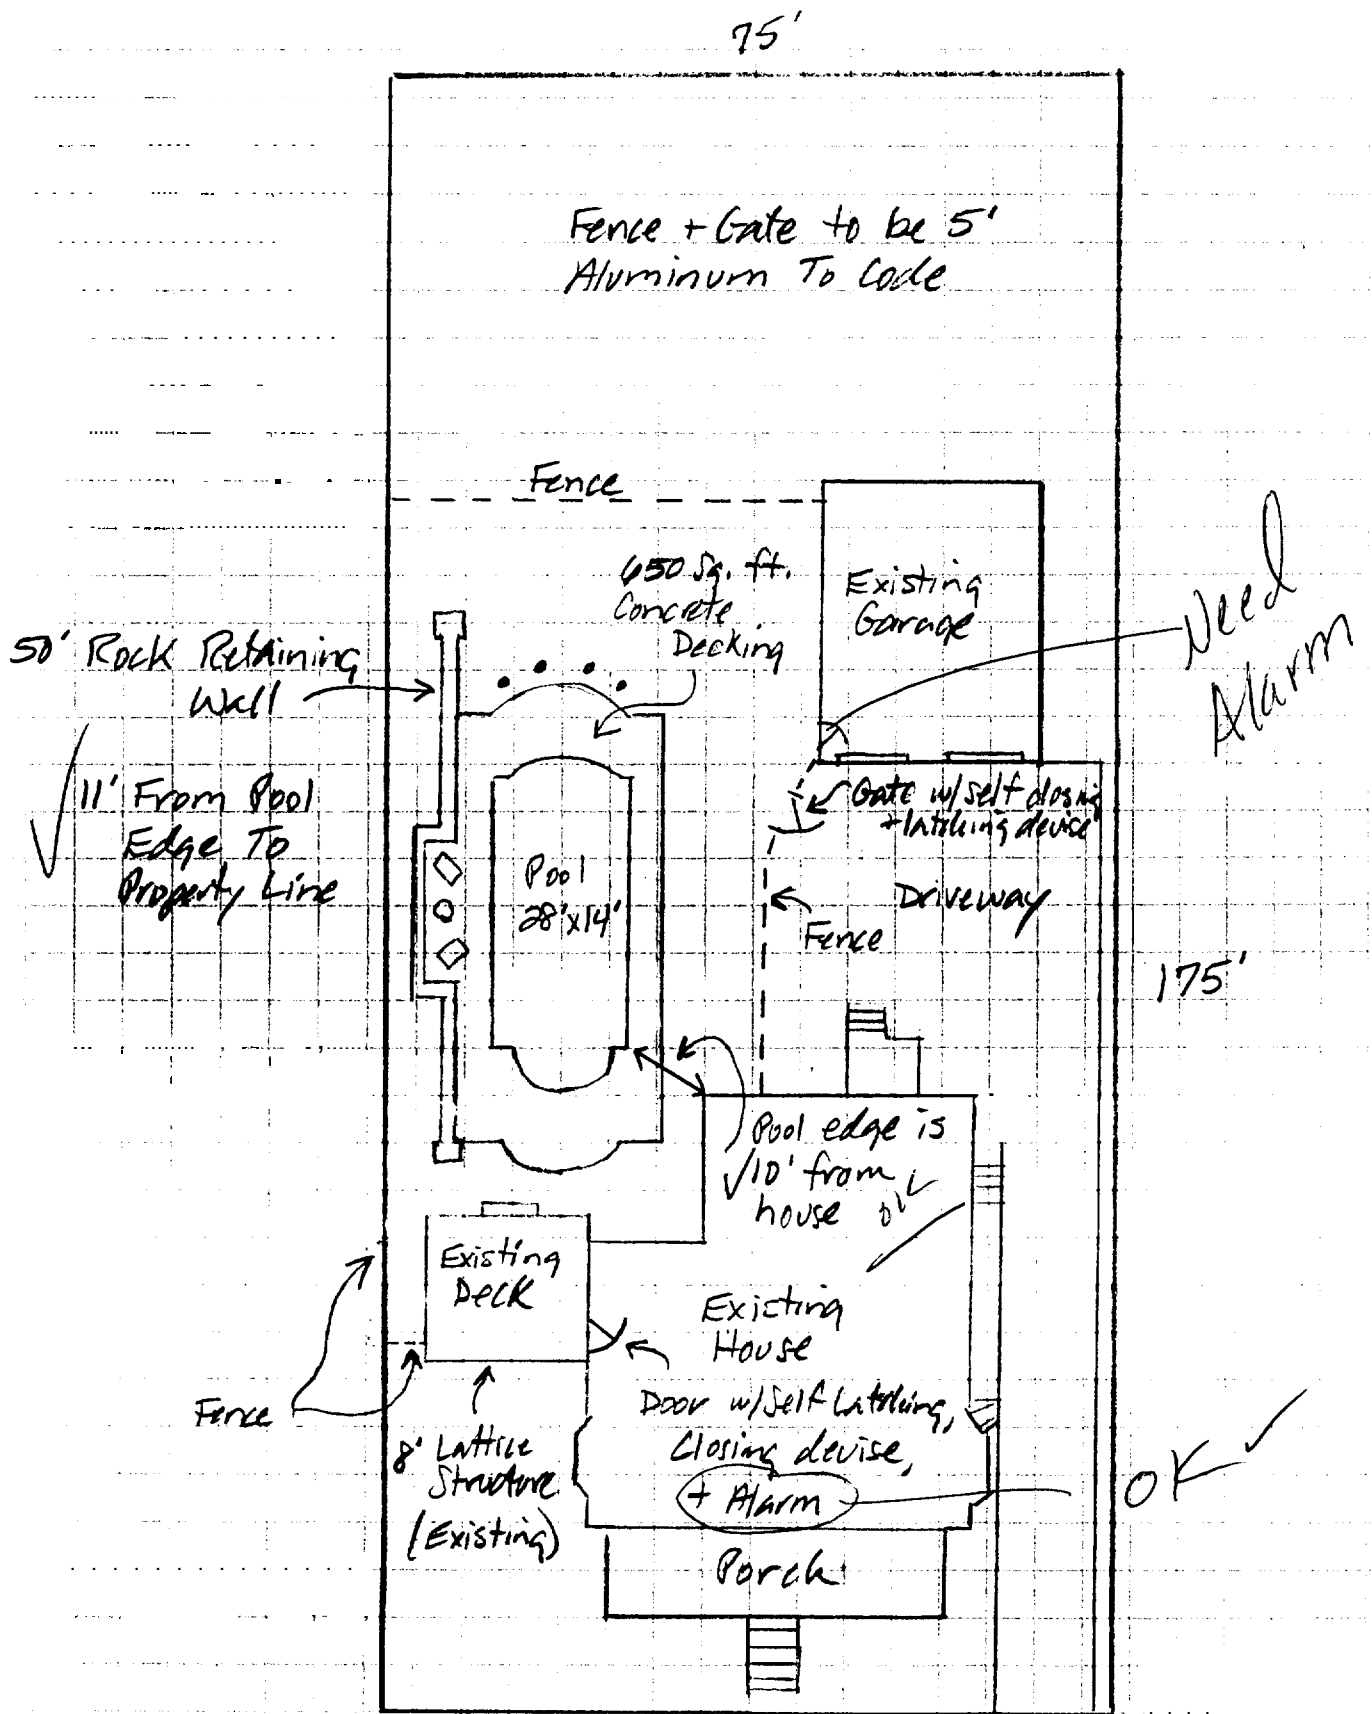 75'
Fence + Gate to be 5'
Aluminum To Code
Fence
650 Sq. ft.
Concrete
Decking
Existing
Garage
Need
Alarm
50' Rock Retaining
Wall
11' From Pool
Edge To
Property Line
Gate w/ self closing
+ latching device
Pool
28'x14'
Driveway
Fence
175'
Pool edge is
10' from
house
OK
Existing
Deck
Existing
House
Fence
Door w/ Self Latching,
Closing devise,
+ Alarm
OK
8' Lattice
Structure
(Existing)
Porch